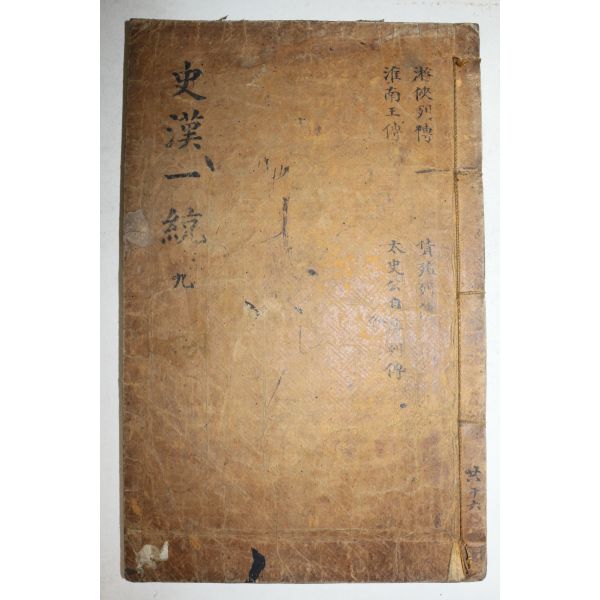 史漢一統 九
游俠列傳
淮南王傳
貨殖列傳
太史公自序列傳
共十六